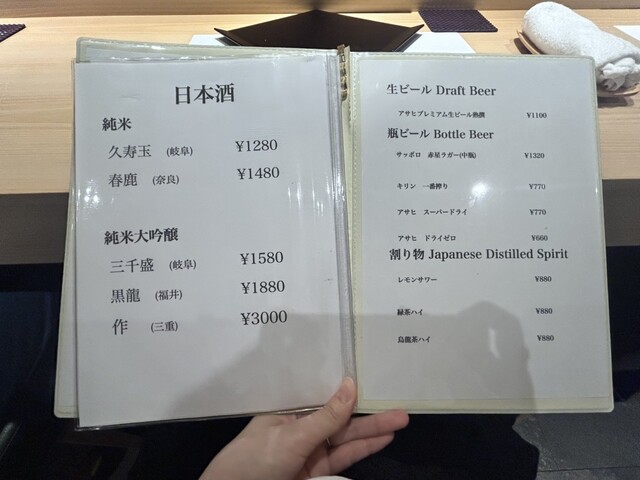 日本酒
純米
久寿玉 (岐阜) ¥1280
春鹿 (奈良) ¥1480
純米大吟醸
三千盛 (岐阜) ¥1580
黒龍 (福井) ¥1880
作 (三重) ¥3000
生ビール Draft Beer
アサヒプレミアム生ビール熟撰 ¥1100
瓶ビール Bottle Beer
サッポロ 赤星ラガー(中瓶) ¥1320
キリン 一番搾り ¥770
アサヒ スーパードライ ¥770
アサヒ ドライゼロ ¥660
割り物 Japanese Distilled Spirit
レモンサワー ¥880
緑茶ハイ ¥880
烏龍茶ハイ ¥880